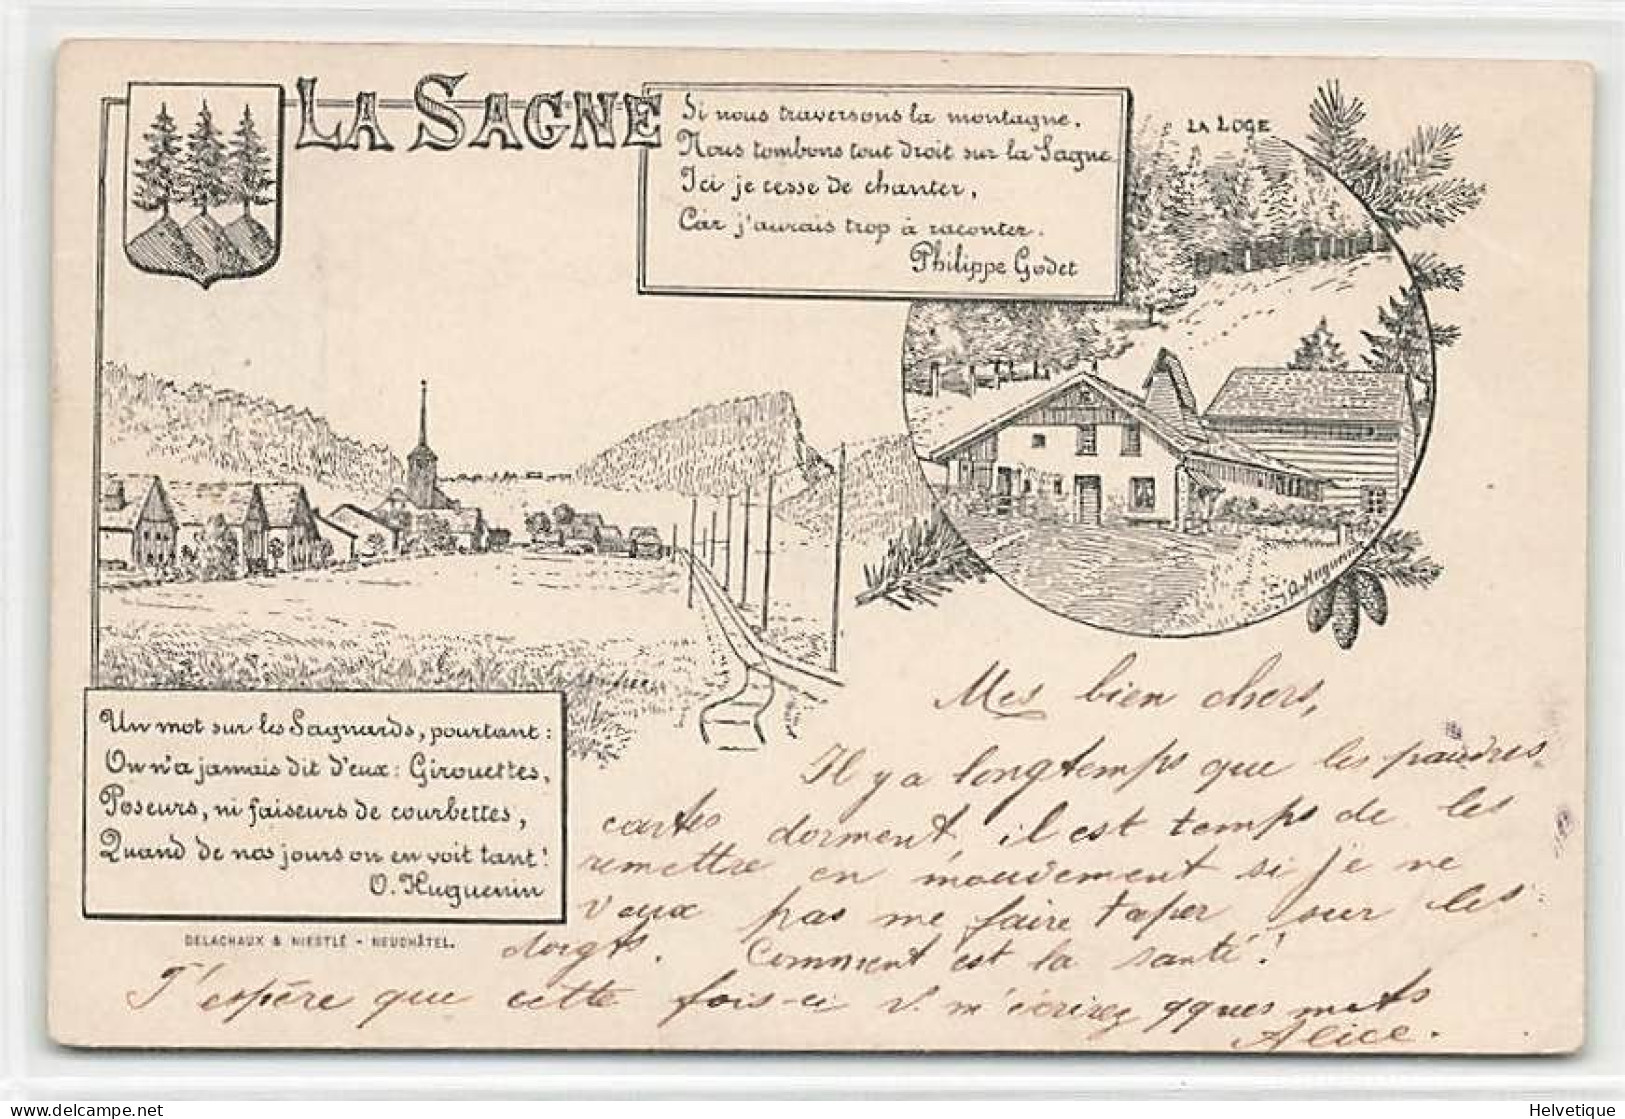 LA SAGNE
Si nous traversons la montagne.
Nous tombons tout droit sur la Sagne
Ici je cesse de chanter,
Car j'aurais trop à raconter.
Philippe Godet
LA LOGE
O. Huguenin
Un mot sur les Sagnards, pourtant:
On n'a jamais dit d'eux: Girouettes,
Poseurs, ni faiseurs de courbettes,
Quand de nos jours on en voit tant!
O. Huguenin
DELACHAUX & NIESTLÉ - NEUCHÂTEL.
Mes bien chers,
Il y a longtemps que les
cartes dorment, il est temps de les
remettre en mouvement si je ne
veux pas me faire taper sur les
doigts. Comment est la santé!
J'espère que cette fois-ci v. m'écrirez qques mots
Alice.
Helvetique
delcampe.net